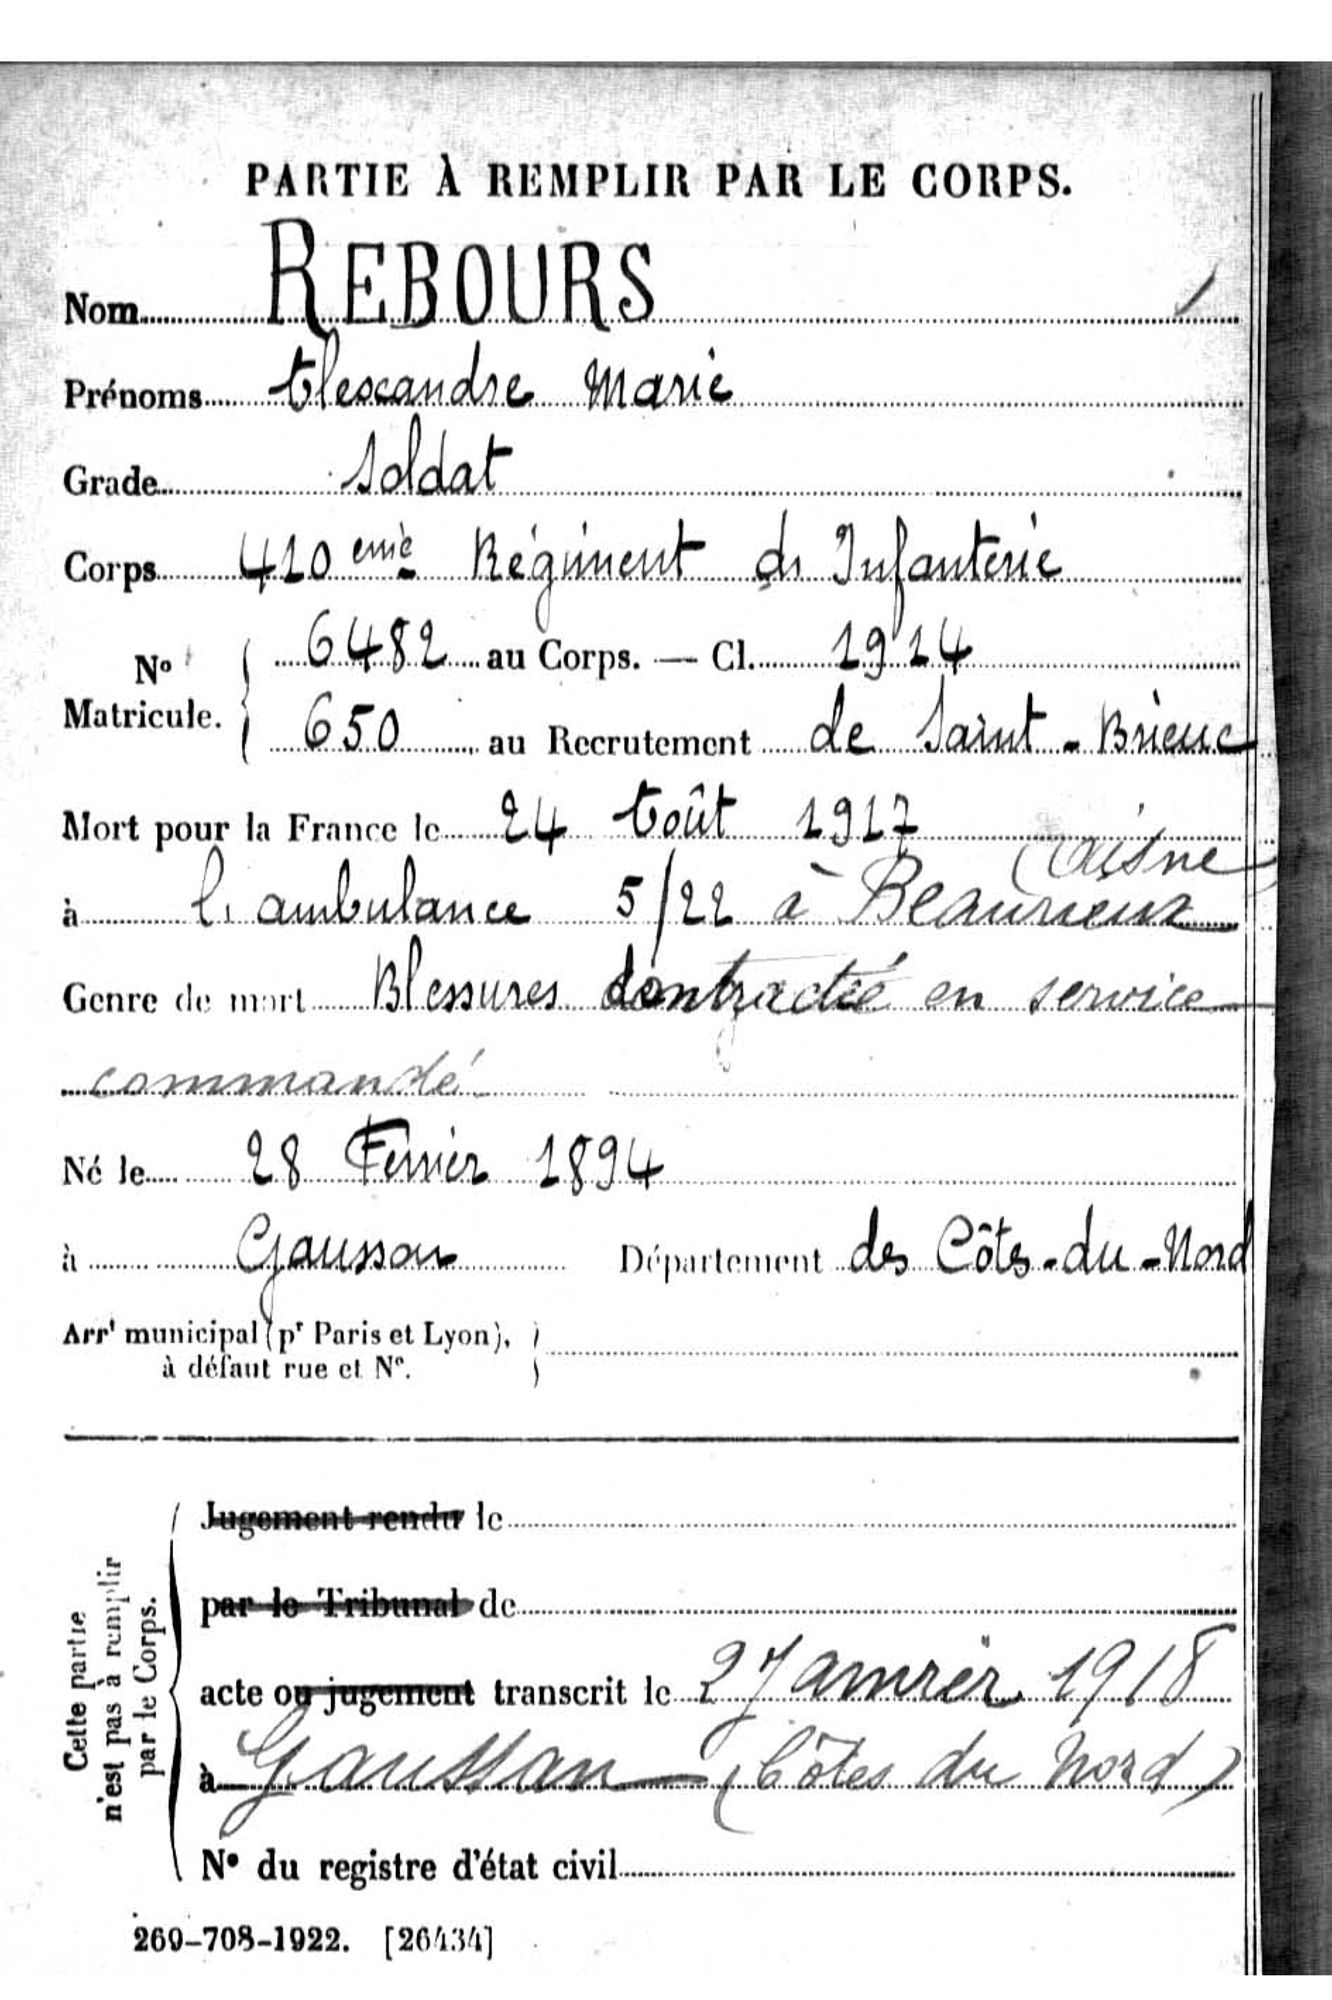 PARTIE À REMPLIR PAR LE CORPS.
Nom REBOURS
Prénoms Alexandre Marie
Grade Soldat
Corps 410 eme Régiment d'Infanterie
No Matricule. 6482 au Corps. — Cl. 1914
650 au Recrutement de Saint-Brieuc
Mort pour la France le 24 Août 1917
(Aisne)
à l'ambulance 5/22 à Beaurieux
Genre de mort Blessures contractée en service
commandé
Né le 28 Février 1894
à Gausson Département des Côtes-du-Nord
Arrt municipal (pr Paris et Lyon),
à défaut rue et N°.
Cette partie
n'est pas à remplir
par le Corps.
Jugement rendu le
par le Tribunal de
acte ou jugement transcrit le 2 Janvier 1918
à Gausson (Côtes du Nord)
N° du registre d'état civil
269-708-1922. [26434]